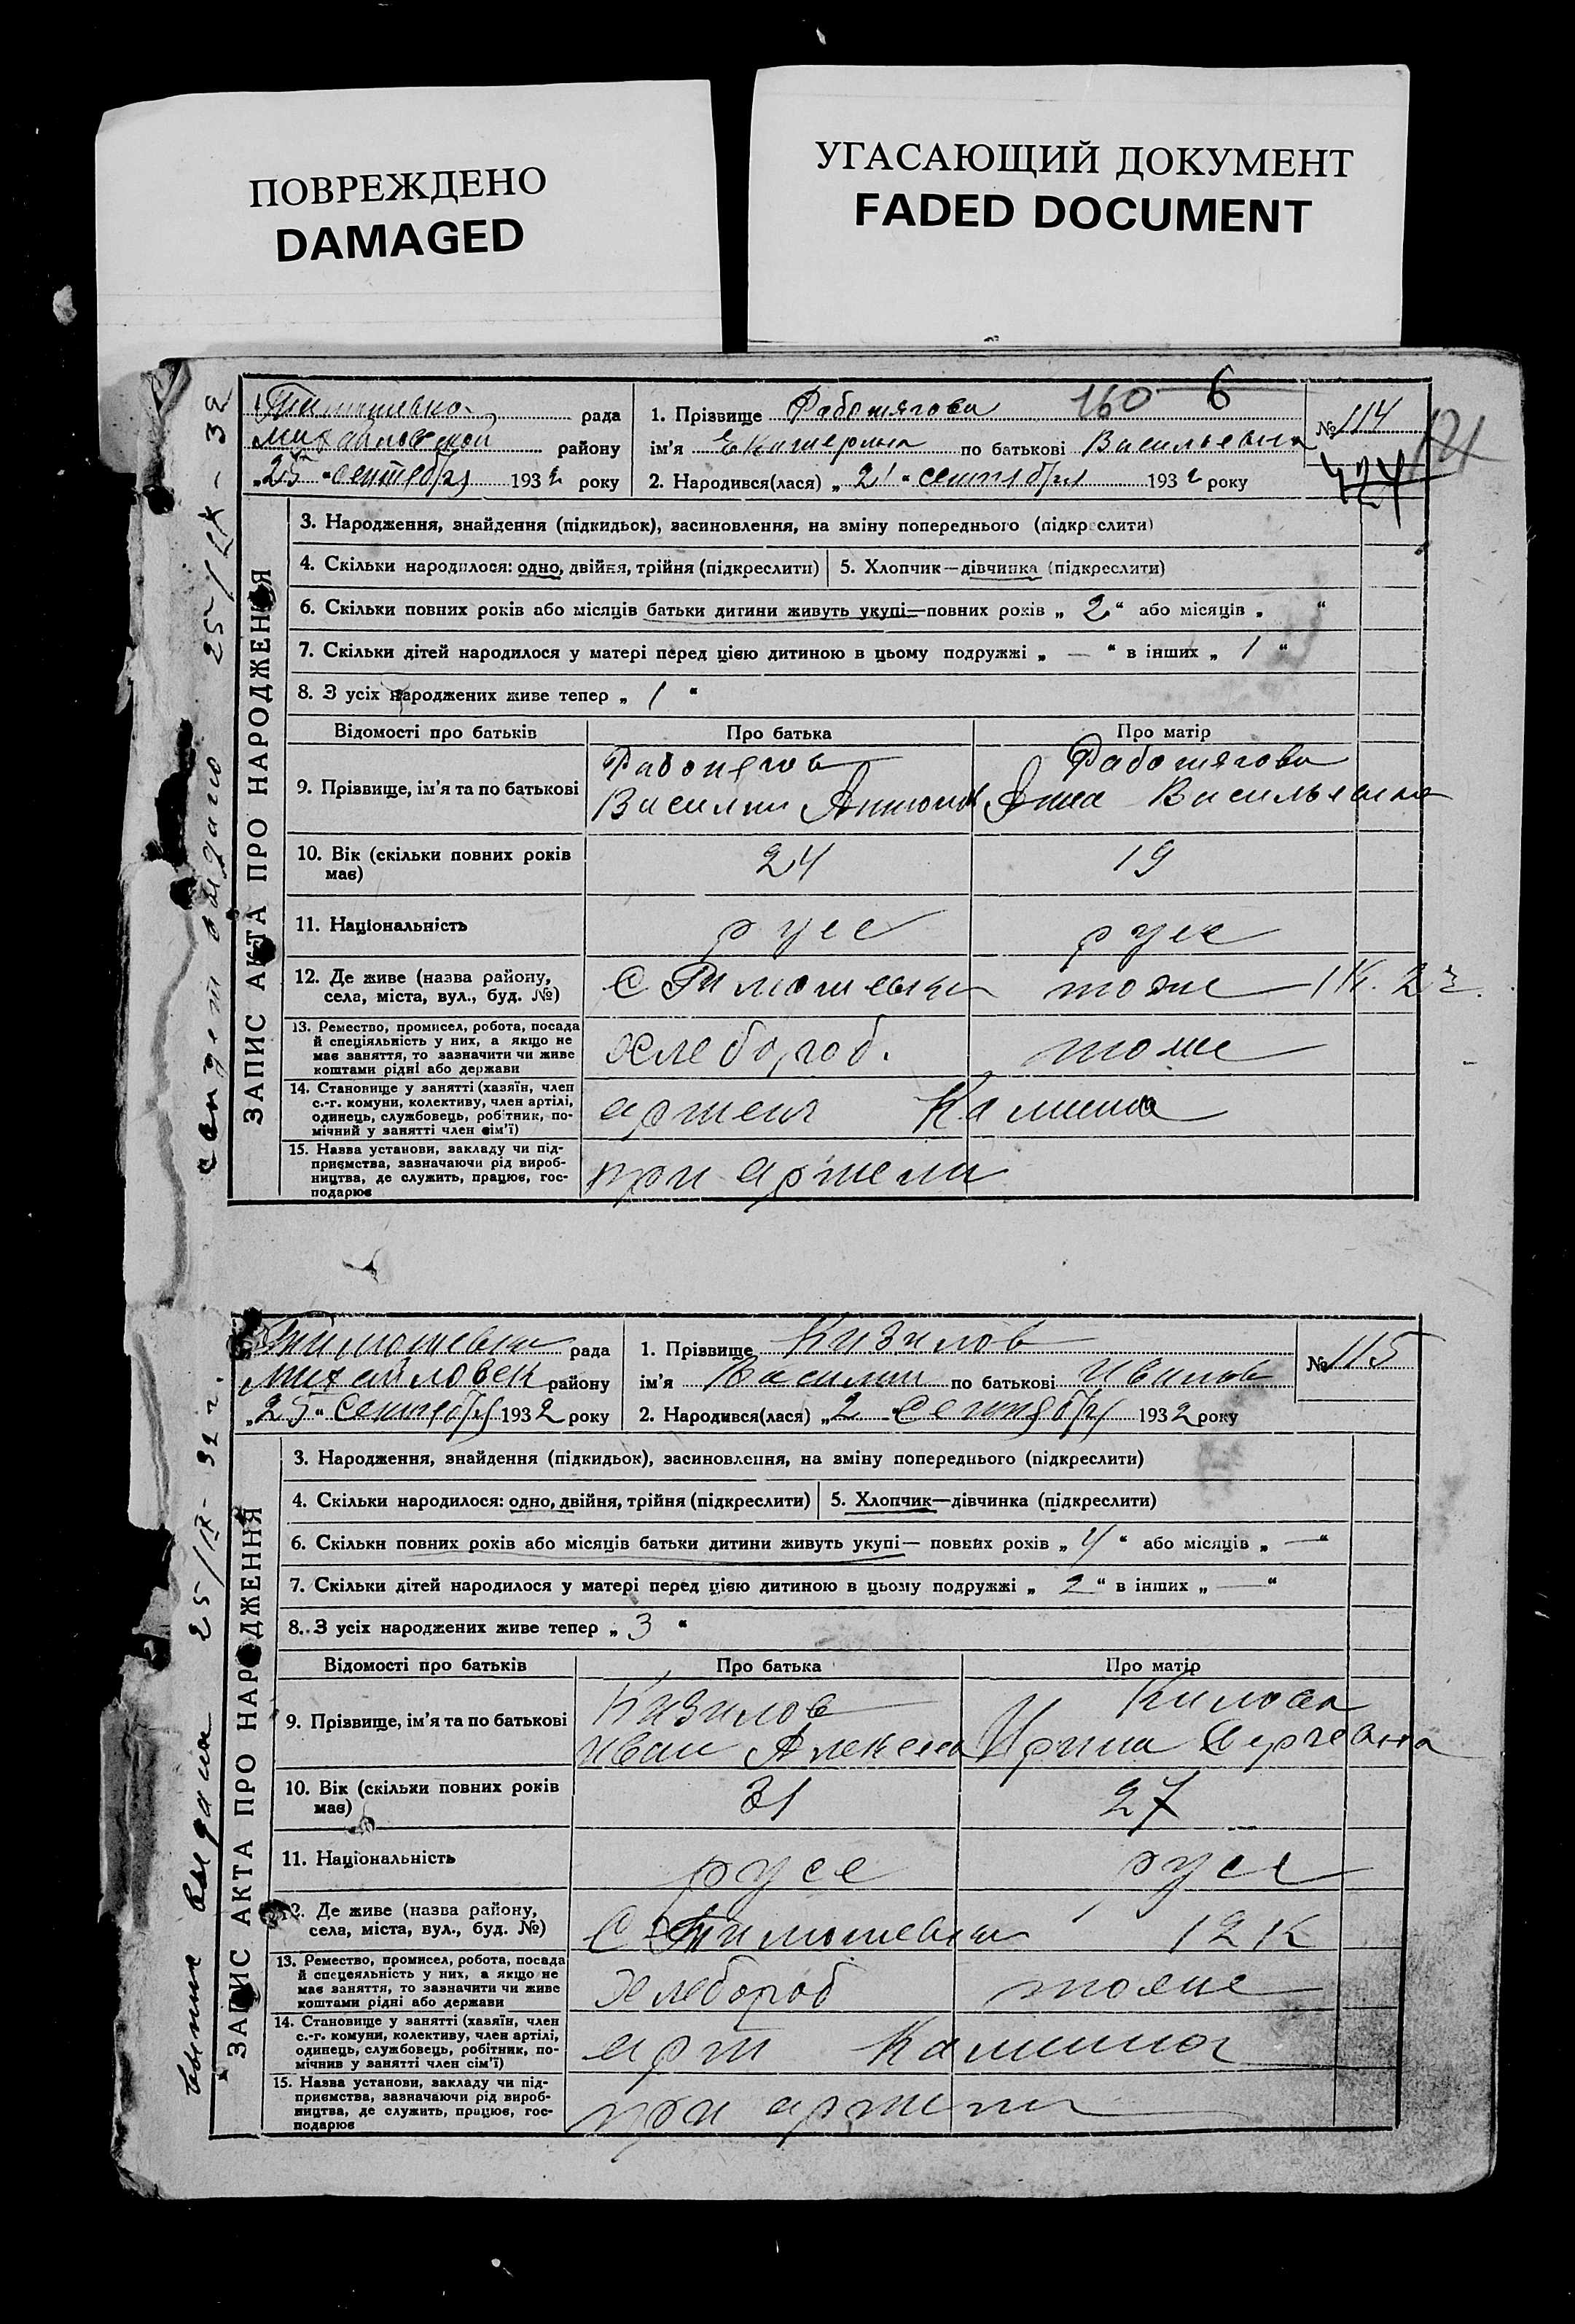 ПОВРЕЖДЕНО
DAMAGED
УГАСАЮЩИЙ ДОКУМЕНТ
FADED DOCUMENT
рада
Михайловской району
„25“ сентября 1932 року
1. Прізвище Работягова
160 6
ім'я Екатерина по батькові Васильевна
2. Народився(лася) „21“ сентября 1932 року
№ 114
424
121
25/IX – 32
ЗАПИС АКТА ПРО НАРОДЖЕННЯ
3. Народження, знайдення (підкидьок), засиновлення, на зміну попереднього (підкреслити)
4. Скільки народилося: одно, двійня, трійня (підкреслити)
5. Хлопчик—дівчинка (підкреслити)
6. Скільки повних років або місяців батьки дитини живуть укупі—повних років „2“ або місяців „ “
7. Скільки дітей народилося у матері перед цією дитиною в цьому подружжі „ — “ в інших „ 1 “
8. З усіх народжених живе тепер „ 1 “
Відомості про батьків
Про батька
Про матір
9. Прізвище, ім'я та по батькові
Работягов
Василий Антонов
Работягова
Анна Васильевна
10. Вік (скільки повних років
має)
24
19
11. Національність
русс
русс
12. Де живе (назва району,
села, міста, вул., буд. №)
С Тимошевка
тоже
1 К. 2 г.
13. Ремество, промисел, робота, посада
й спеціяльність у них, а якщо не
має заняття, то зазначити чи живе
коштами рідні або держави
хлебороб.
тоже
14. Становище у занятті (хазяїн, член
с.-г. комуни, колективу, член артілі,
одинець, службовець, робітник, по-
мічний у занятті член сім'ї)
артель Калинина
15. Назва установи, закладу чи під-
приємства, зазначаючи рід вироб-
ництва, де служить, працює, гос-
подарює
при артели
Тимошевка рада
Михайловск району
„25“ Сентября 1932 року
1. Прізвище Кизилов
ім'я Василий по батькові Иванов
2. Народився(лася) „2“ Сентября 1932 року
№ 115
выдана 25/IX – 32 г.
ЗАПИС АКТА ПРО НАРОДЖЕННЯ
3. Народження, знайдення (підкидьок), засиновлення, на зміну попереднього (підкреслити)
4. Скільки народилося: одно, двійня, трійня (підкреслити)
5. Хлопчик—дівчинка (підкреслити)
6. Скільки повних років або місяців батьки дитини живуть укупі— повних років „ 4 “ або місяців „ — “
7. Скільки дітей народилося у матері перед цією дитиною в цьому подружжі „ 2 “ в інших „ — “
8. З усіх народжених живе тепер „ 3 “
Відомості про батьків
Про батька
Про матір
9. Прізвище, ім'я та по батькові
Кизилов
Иван Алексеев
Килова
Ирина Сергеевна
10. Вік (скільки повних років
має)
31
27
11. Національність
русс
русс
12. Де живе (назва району,
села, міста, вул., буд. №)
С Тимошевка
12 К
13. Ремество, промисел, робота, посада
й спецеяльність у них, а якщо не
має заняття, то зазначити чи живе
коштами рідні або держави
хлебороб
тоже
14. Становище у занятті (хазяїн, член
с.-г. комуни, колективу, член артілі,
одинець, службовець, робітник, по-
мічнив у занятті член сім'ї)
арт Калинина
15. Назва установи, закладу чи під-
приємства, зазначаючи рід вироб-
ництва, де служить, працює, гос-
подарює
при артели